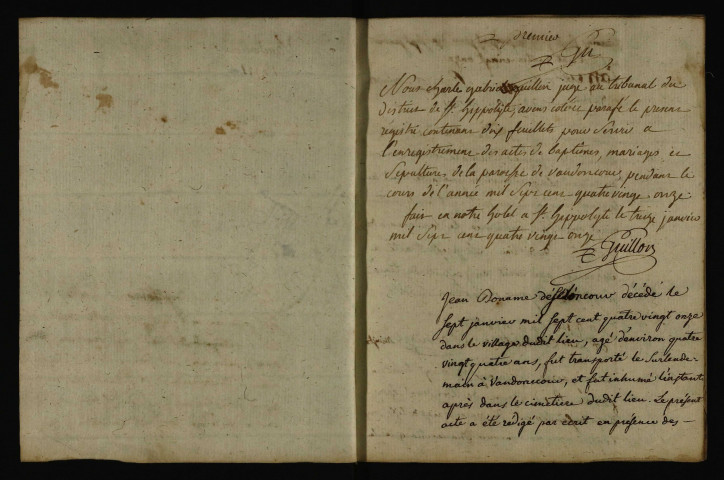 premier
Gu
Nous Charle Gabriel Guillon juge au tribunal du
district de St. hippolyte, avons cotté et parafé le present
registre contenant dix feuillets pour servir a
l'enregistrement des actes de baptêmes, mariages et
sepultures de la paroisse de vandoncour, pendant le
cours de l'année mil sept cent quatre vingt onze
fait en notre hotel a St. hyppolyte le treize janvier
mil sept cent quatre vingt onze
Guillon
Jean Doname de Seloncour décédé le
Sept janvier mil Sept cent quatre vingt onze
dans le village dudit lieu, agé d'environ quatre
vingt quatre ans, fut transporté le Surlende-
main à Vandoncour, et fut inhumé l'instant
après dans le cimetiere dudit lieu. Le présent
acte a été redigé par écrit en présence des —